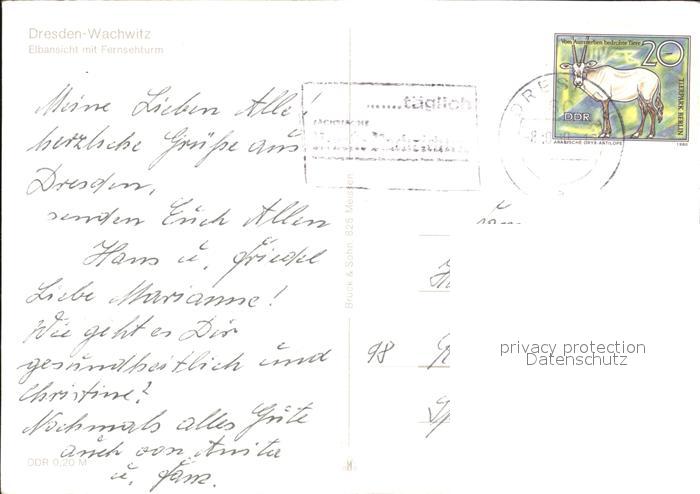 Dresden-Wachwitz
Elbansicht mit Fernsehturm
Meine Lieben Alle!
herzliche Grüße aus
Dresden,
senden Euch Allen
Hans u. Friedel
Liebe Marianne!
Wie geht es Dir
gesundheitlich und
Christine?
Nochmals alles Gute
auch von Anita
u. Fam.
DDR 0,20 M
Bruck & Sohn, 825 Meissen
.......täglich
SÄCHSISCHE
Vom Aussterben bedrohte Tiere
20
TIERPARK BERLIN
DDR
ARABISCHE ORYX-ANTILOPE
1980
DRES
98
privacy protection
Datenschutz